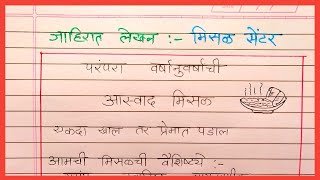 जाहिरात लेखन :- मिसळ सेंटर
परंपरा वर्षानुवर्षाची
आस्वाद मिसळ
एकदा खाल तर प्रेमात पडाल
आमची मिसळची वैशिष्ट्ये :-